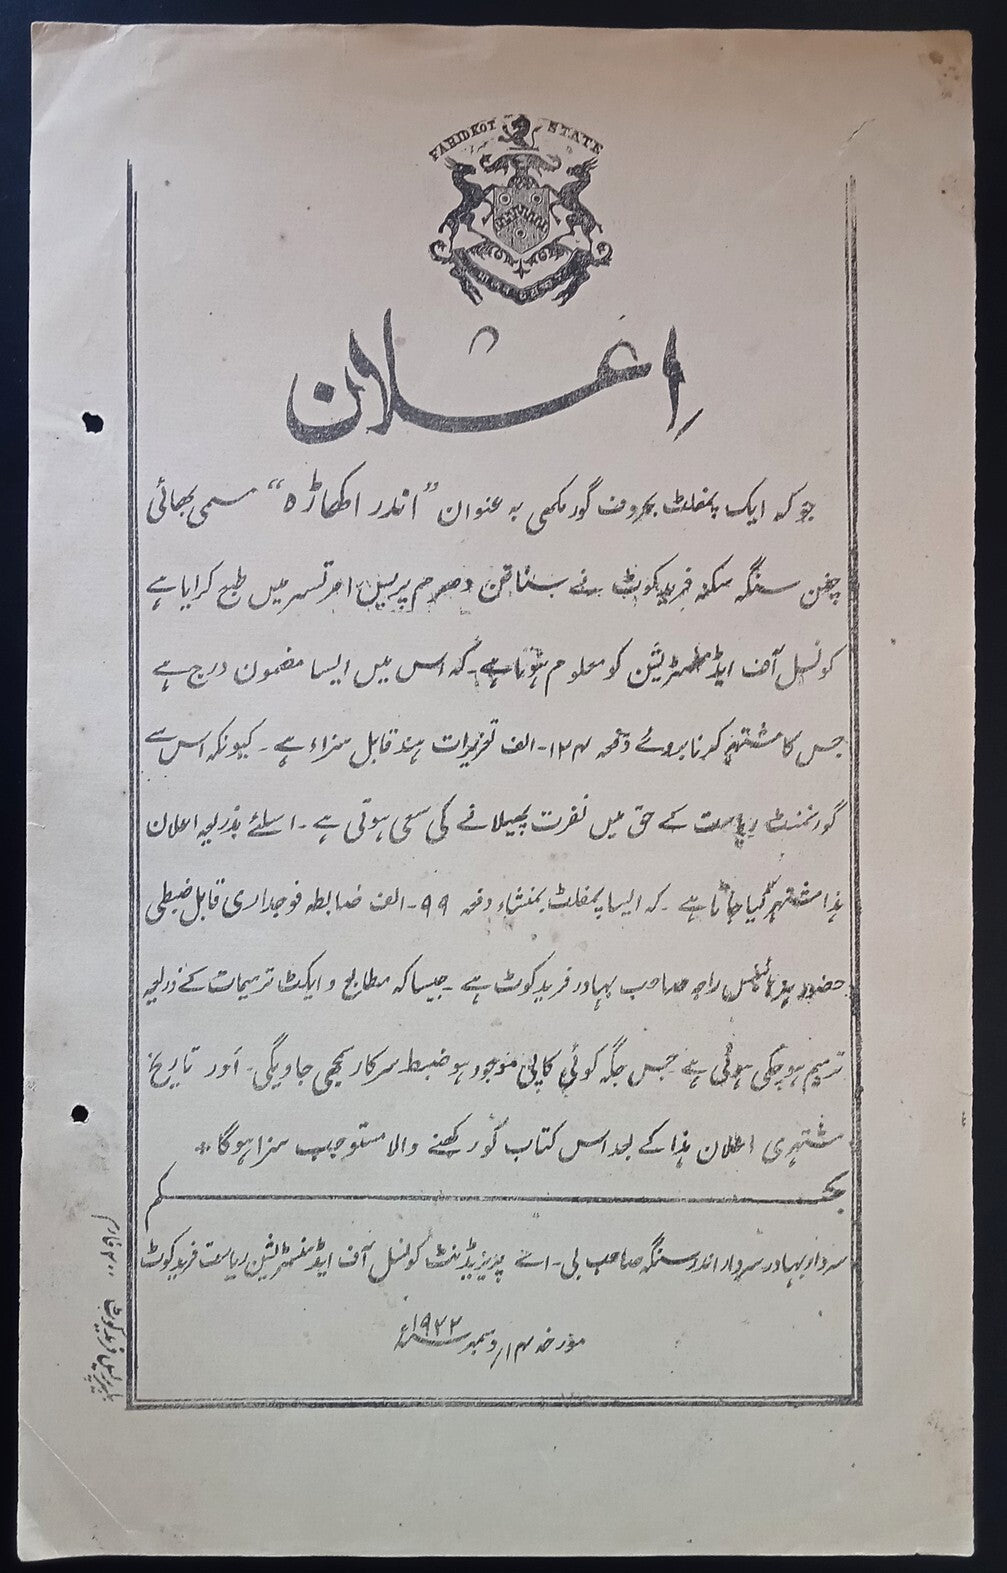 FARIDKOT STATE
اعلان
جو کہ ایک پمفلٹ بحروف گورمکھی بہ عنوان "اندر اکھاڑہ" مسمی بھائی
سنگہ سکنہ فریدکوٹ نے سناتن دھرم پریس امرتسر میں طبع کرایا ہے
کونسل آف ایڈمنسٹریشن کو معلوم ہوتا ہے۔ کہ اس میں ایسا مضمون درج ہے
جس کا مشتہر کرنا بروئے دفعہ ۱۲۴۔ الف تعزیرات ہند قابل سزاء ہے۔ کیونکہ اس سے
گورنمنٹ ریاست کے حق میں نفرت پھیلانے کی سعی ہوتی ہے۔ اسلئے بذریعہ اعلان
ہذا مشتہر کیا جاتا ہے۔ کہ ایسا پمفلٹ بمنشاء دفعہ ۹۹۔ الف ضابطہ فوجداری قابل ضبطی
حضور ہزہائینس راجہ صاحب بہادر فریدکوٹ ہے۔ جیسا کہ مطابع و ایکٹ ترمیمات کے ذریعہ
ترمیم ہوچکی ہوئی ہے جس جگہ کوئی کاپی موجود ہو ضبط سرکار سمجھی جاویگی۔ اور تاریخ
مشتہری اعلان ہذا کے بعد اس کتاب کو رکھنے والا مستوجب سزا ہوگا
بحکم
سردار بہادر سردار اندر سنگہ صاحب بی۔ اے پریزیڈینٹ کونسل آف ایڈمنسٹریشن ریاست فریدکوٹ
مورخہ ۱۴ دسمبر ۱۹۲۲ء